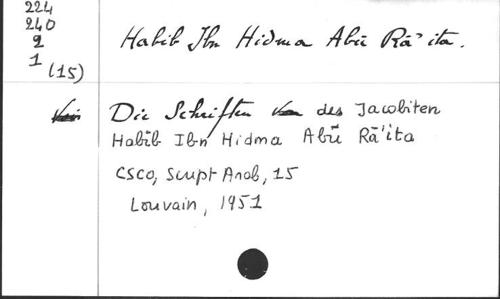 224
240
2
1
(15)
Habib Ibn Hidma Abū Rā'ita.
Die Schriften des Jacobiten
Habīb Ibn Hidma Abū Rā'ita
CSCO, Script Arab, 15
Louvain, 1951